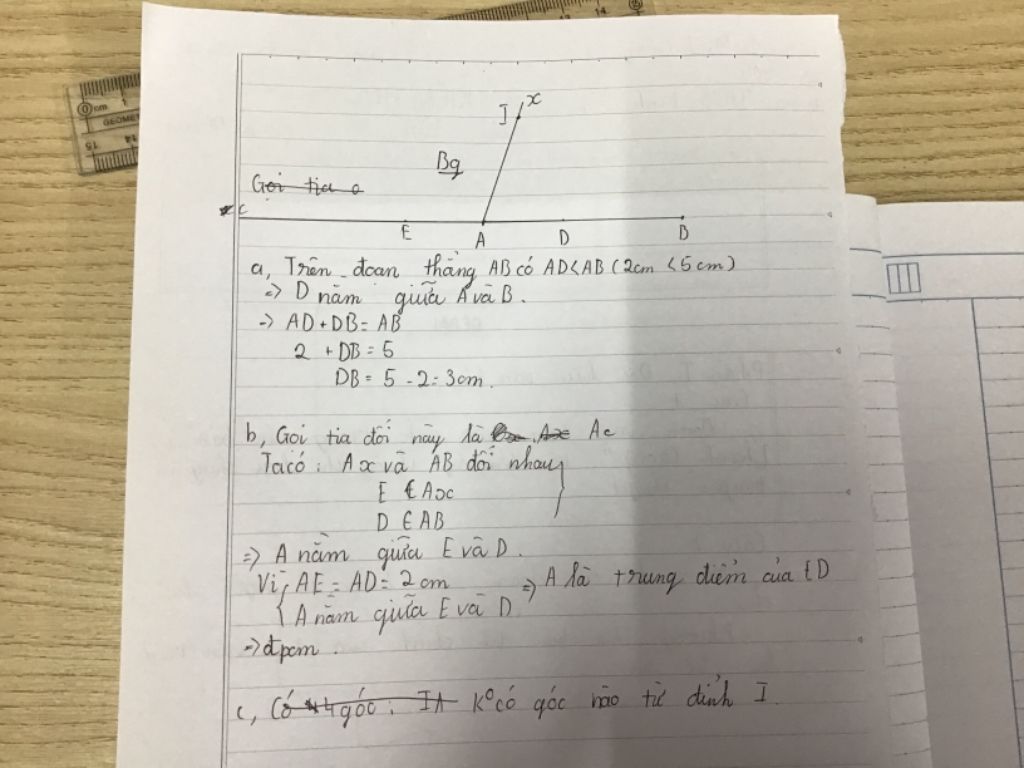 I x
Bg
Gọi tia
c
E A D B
a, Trên đoạn thẳng AB có AD < AB (2cm < 5cm)
=> D nằm giữa A và B.
-> AD + DB = AB
2 + DB = 5
DB = 5 - 2 = 3cm.
b, Gọi tia đối này là Ax Ac
Ta có: Ax và AB đối nhau
E ∈ Ax
D ∈ AB
=> A nằm giữa E và D.
Vì, AE = AD = 2cm => A là trung điểm của ED
{ A nằm giữa E và D.
=> đpcm.
c, Có 4 góc: IA K° có góc nào từ đỉnh I